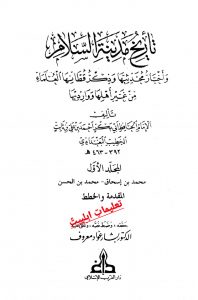 تاريخ مدينة السلام
وأخبار محدثيها وذكر قطانها العلماء
من غير أهلها ووارديها
تأليف
الإمام الحافظ أبي بكر أحمد بن علي بن ثابت
الخطيب البغدادي
٣٩٢ - ٤٦٣ هـ
المجلد الأول
محمد بن إسحاق - محمد بن الحسن
المقدمة والخطط
حققه، وضبط نصه، وعلق عليه
الدكتور بشار عواد معروف
دار الغرب الإسلامي